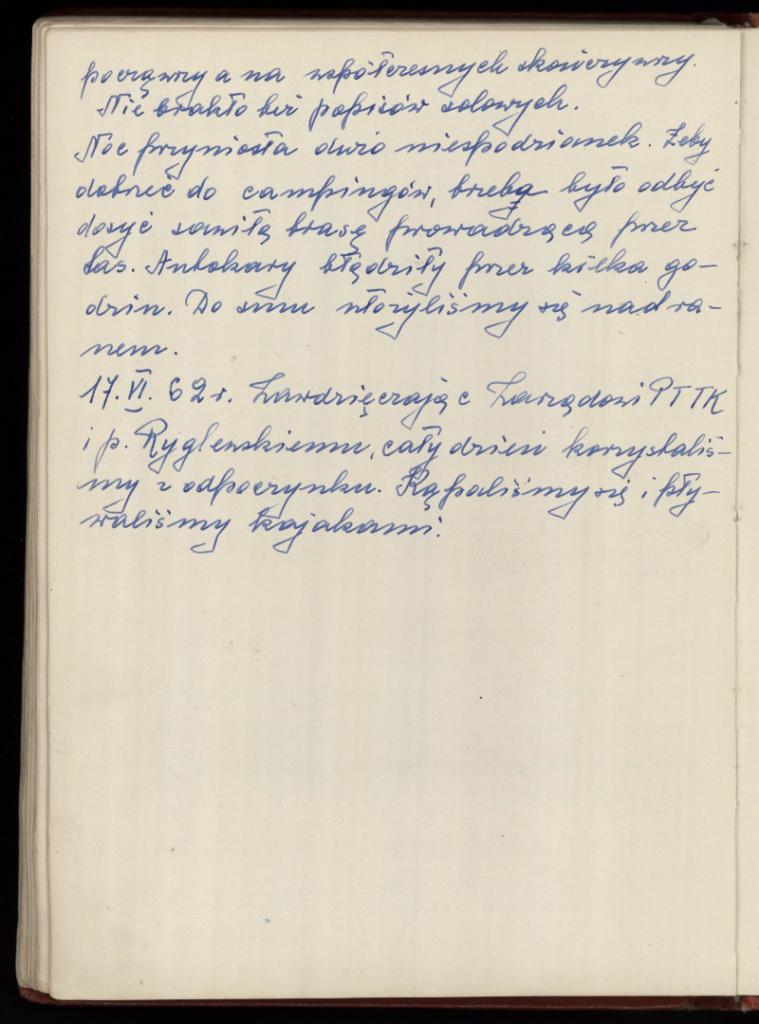 począwszy a na współczesnych skończywszy.
Nie brakło też popisów solowych.
Noc przyniosła dużo niespodzianek. Żeby
dotrzeć do campingów, trzeba było odbyć
dosyć zawiłą trasę prowadzącą przez
las. Autokary błądziły przez kilka go-
dzin. Do snu ułożyliśmy się nad ra-
nem.
17.VI.62r. Zawdzięczając Zarządowi PTTK
i p. Ryglewskiemu, cały dzień korzystaliś-
my z odpoczynku. Kąpaliśmy się i pły-
waliśmy kajakami.